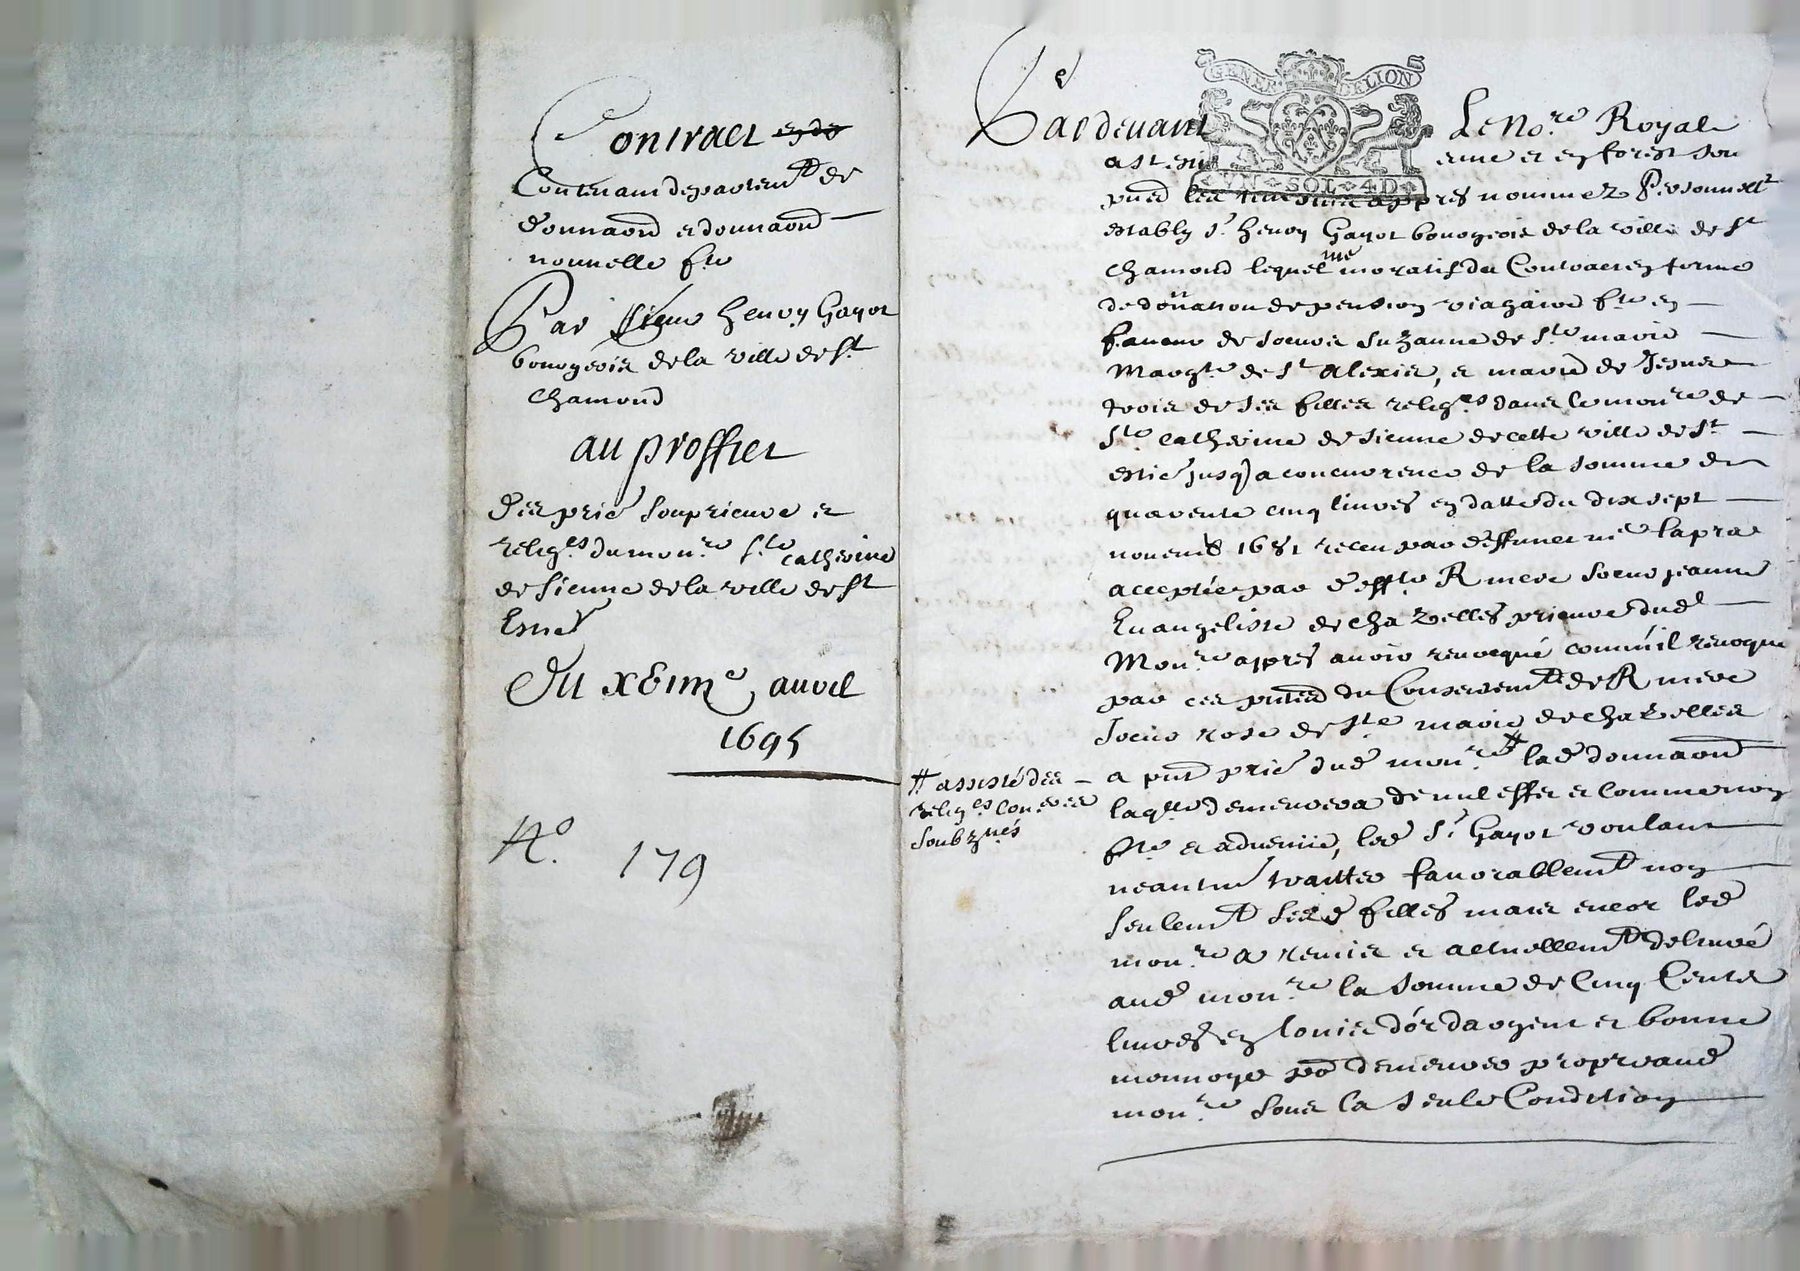 Contract et de
Contenant departem.t de
donnaõn et donnaõn
nouvelle f.te
Par Sieur henry Gayot
bourgeois de la ville de S.t
chamond
au proffict
des prieé souprieure et
relig.es du mon.re S.te catherine
de sienne de la ville de S.t
Estiee
Du xviij.me avril
1695
N.o 179
GENER DE LION
UN SOL 4D
Pardevant Le No.re Royal
a st esti enne et en forest sou
pnes les tesmoins appres nommez Personnell.t
estably s.r henry Gayot bourgeois de la ville de S.t
chamond lequel me moratif du Contract en forme
de donation de pension viagaire f.te en
faveur de soeurs Suzanne de S.te marie
Marg.te de S.t Alexis, et marie de Jesus
trois de ses filles relig.es dans le mon.re de
S.te catherine de sienne de cette ville de S.t
estie jusq a concurrence de la somme de
quarente cinq livres en datte du dix sept
novemb 1681 receu par deffunct me lapra
acceptée par deff.te R mere soeur jeanne
Evangeliste de chazelles prieure dud
Mon.re appres avoir revocqué comme il revoque
par ces pntes du Consentem.t de R mere
soeur rose de S.te marie de chazelles
a pnt prie dud mon.re # lad donnaõn
laq.lle demeurera de nul effet et comme non
f.te et advenue, led S.r Gayot voulant
neantm traitter favorablem.t non
seulem.t sesd filles mais encor led
mon.re a remis et actuellem.t delivré
aud mon.re la somme de Cinq Cents
livres en louis d'or d'argent et bonne
monnoye po demeurer propre aud
mon.re sous la seule Condition
# assisté des
relig.es Con.eres
soubz.nés